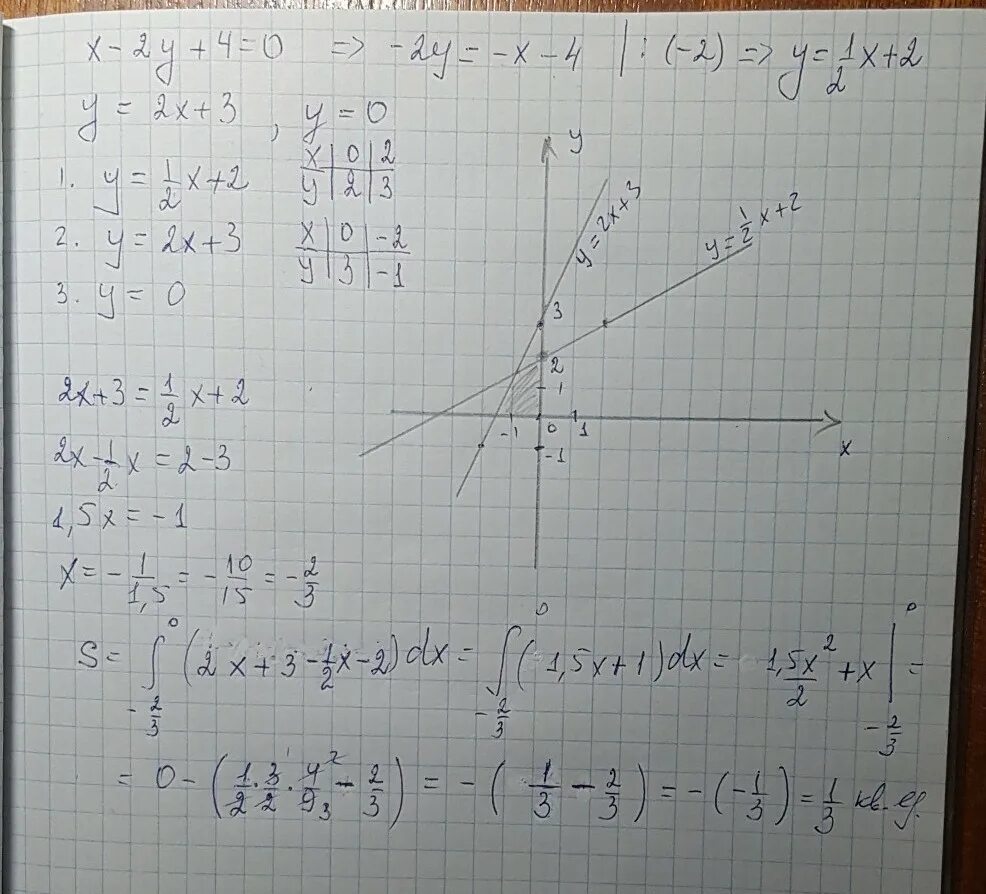 x - 2y + 4 = 0 => -2y = -x - 4 | : (-2) => y = 1/2 x + 2
y = 2x + 3 , y = 0
1. y = 1/2 x + 2
x | 0 | 2
y | 2 | 3
2. y = 2x + 3
x | 0 | -2
y | 3 | -1
3. y = 0
y
y = 2x + 3
y = 1/2 x + 2
3
2
1
-1 0 1
-1
x
2x + 3 = 1/2 x + 2
2x - 1/2 x = 2 - 3
1,5x = -1
x = - 1/1,5 = - 10/15 = - 2/3
S = ∫_{-2/3}^{0} (2x + 3 - 1/2 x - 2) dx = ∫_{-2/3}^{0} (1,5x + 1) dx = 1,5x²/2 + x |_{-2/3}^{0} =
= 0 - (1/2 · 3/2 · 4/9 - 2/3) = - (1/3 - 2/3) = - (-1/3) = 1/3 кв. ед.